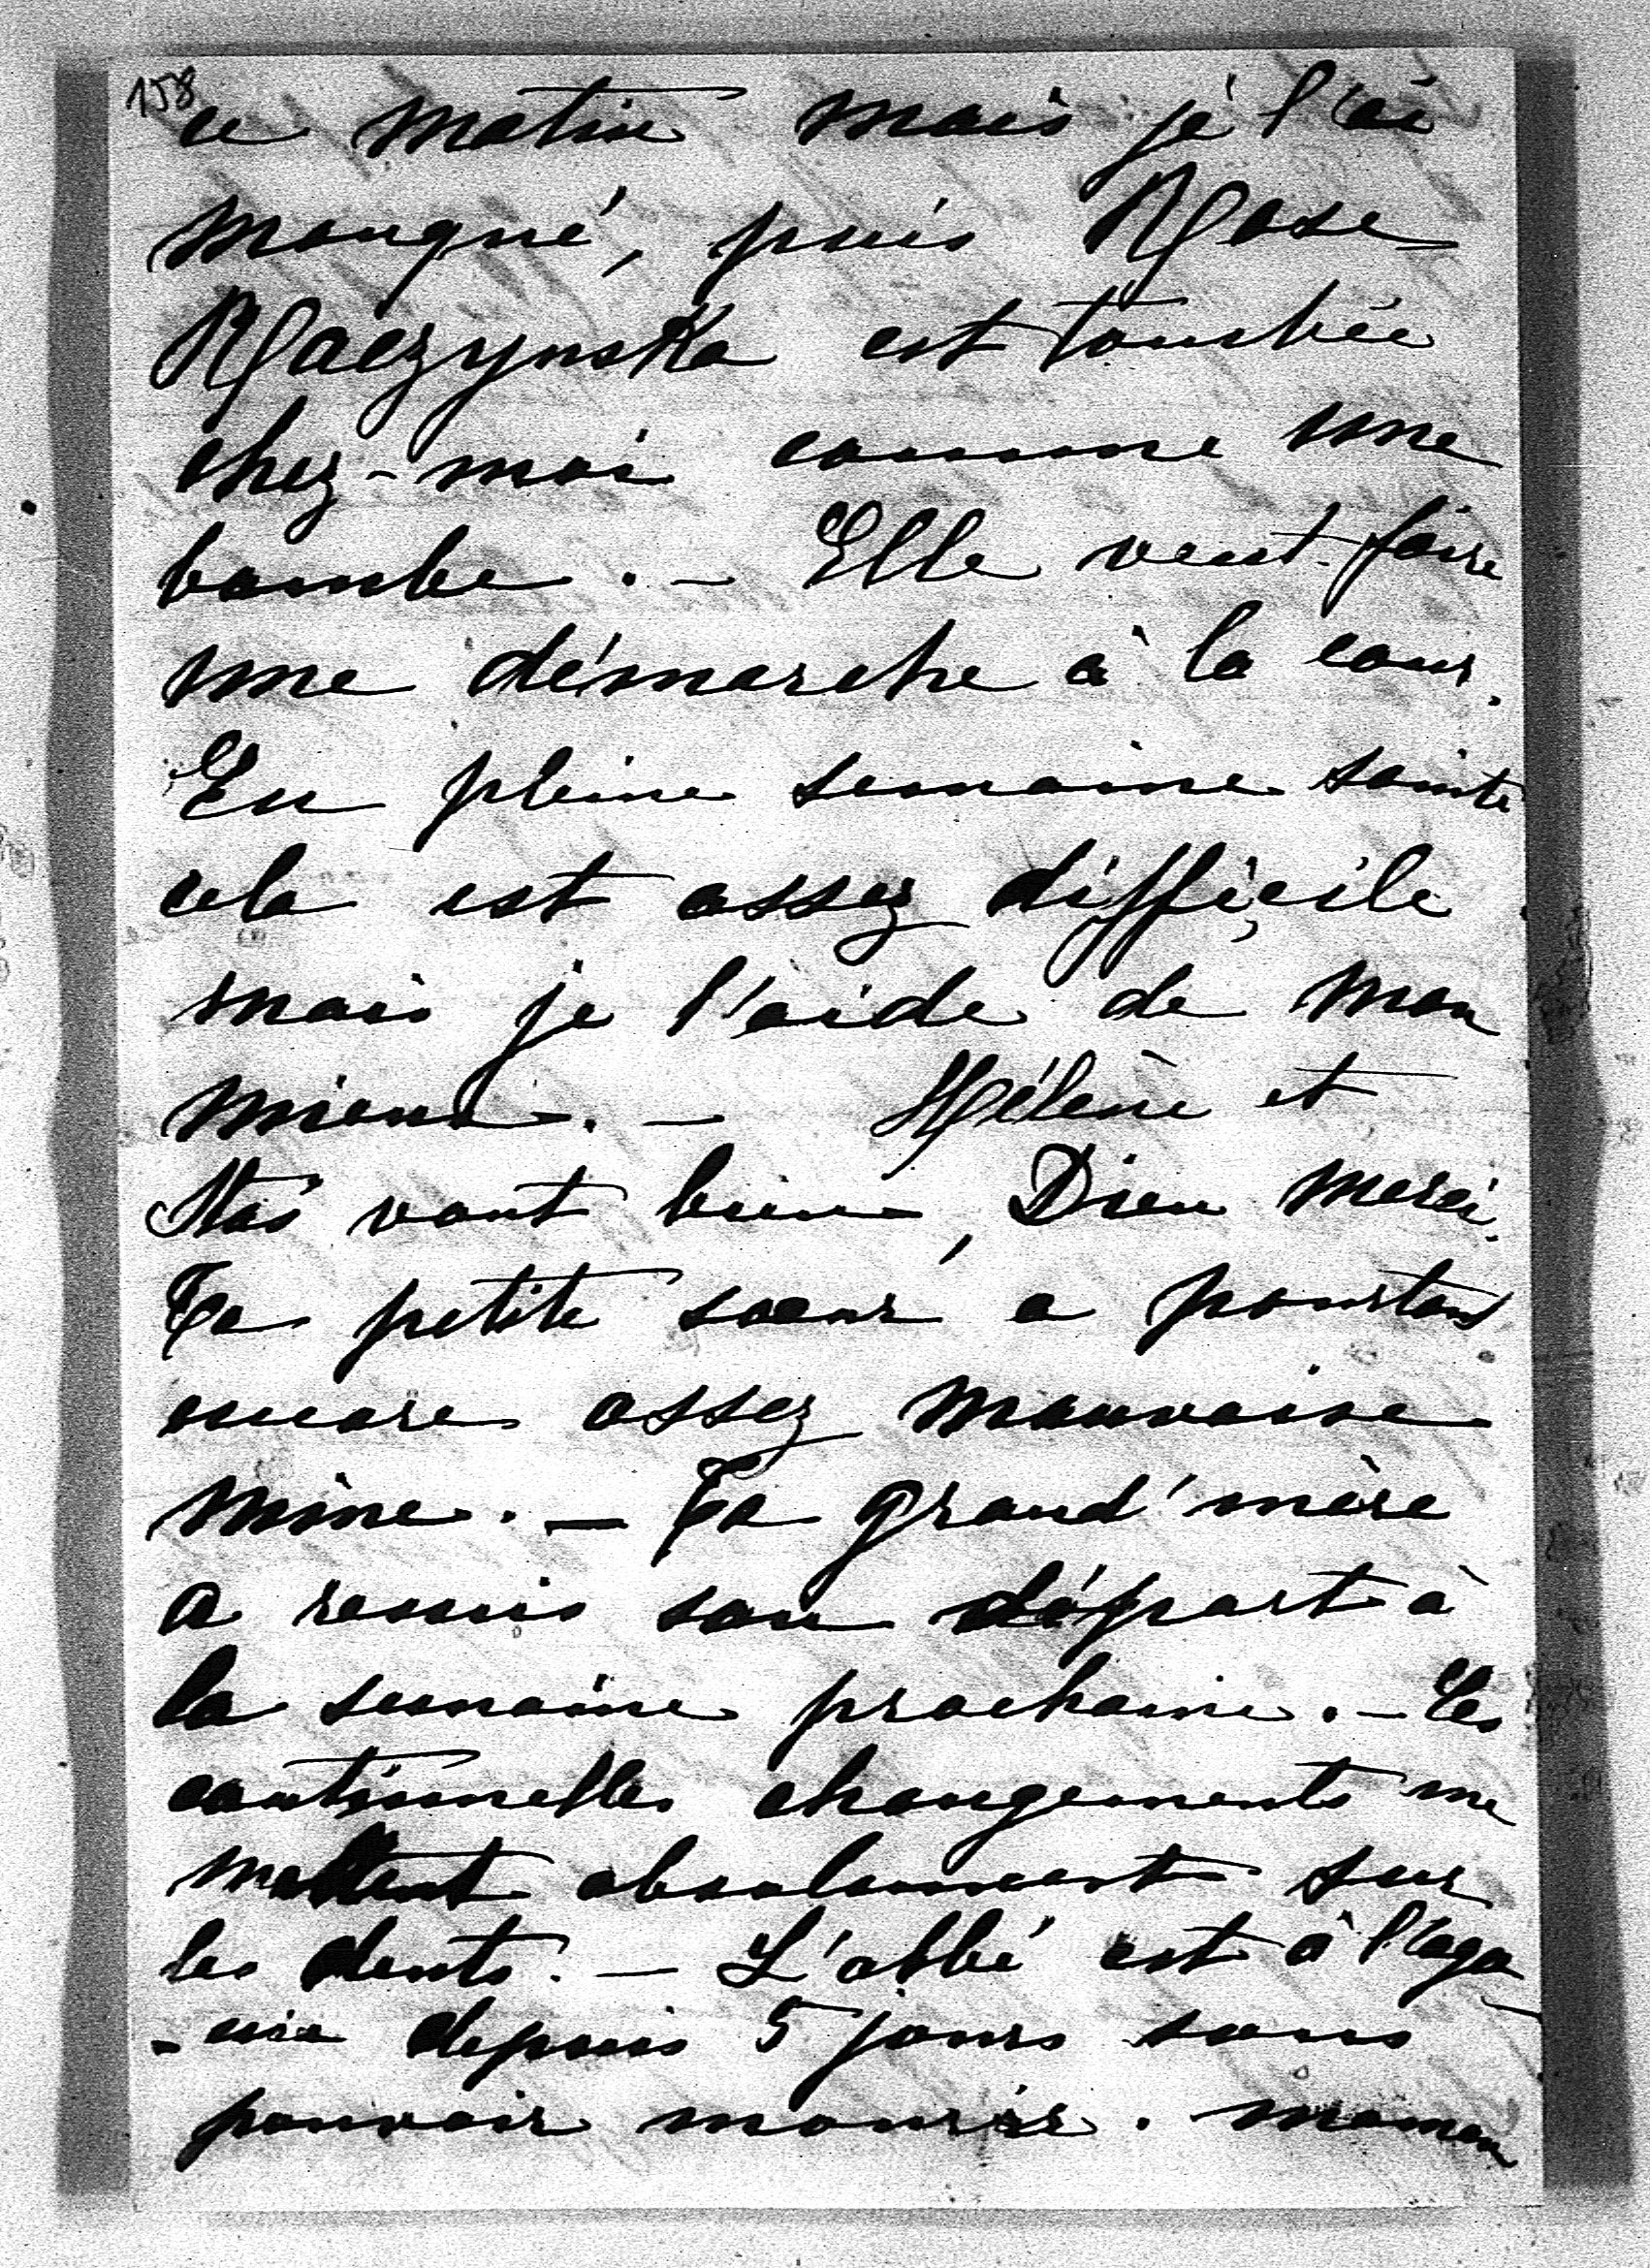 158
ce matin mais je l'ai
manqué, puis Rose
Raczynska est tombée
chez-moi comme une
bombe. - Elle veut faire
une démarche à la cour.
En pleine semaine sainte
cela est assez difficile.
mais je l'aide de mon
mieux. - Hélène et
Stas vont bien, Dieu merci.
Ta petite soeur a pourtant
encore assez mauvaise
mine. - Ta grand'mère
a remis son départ à
la semaine prochaine. - Ces
continuelles changements me
mettent absolument sur
les dents. - L'abbé est à l'ago-
-nie depuis 5 jours sans
pouvoir mourir. maman